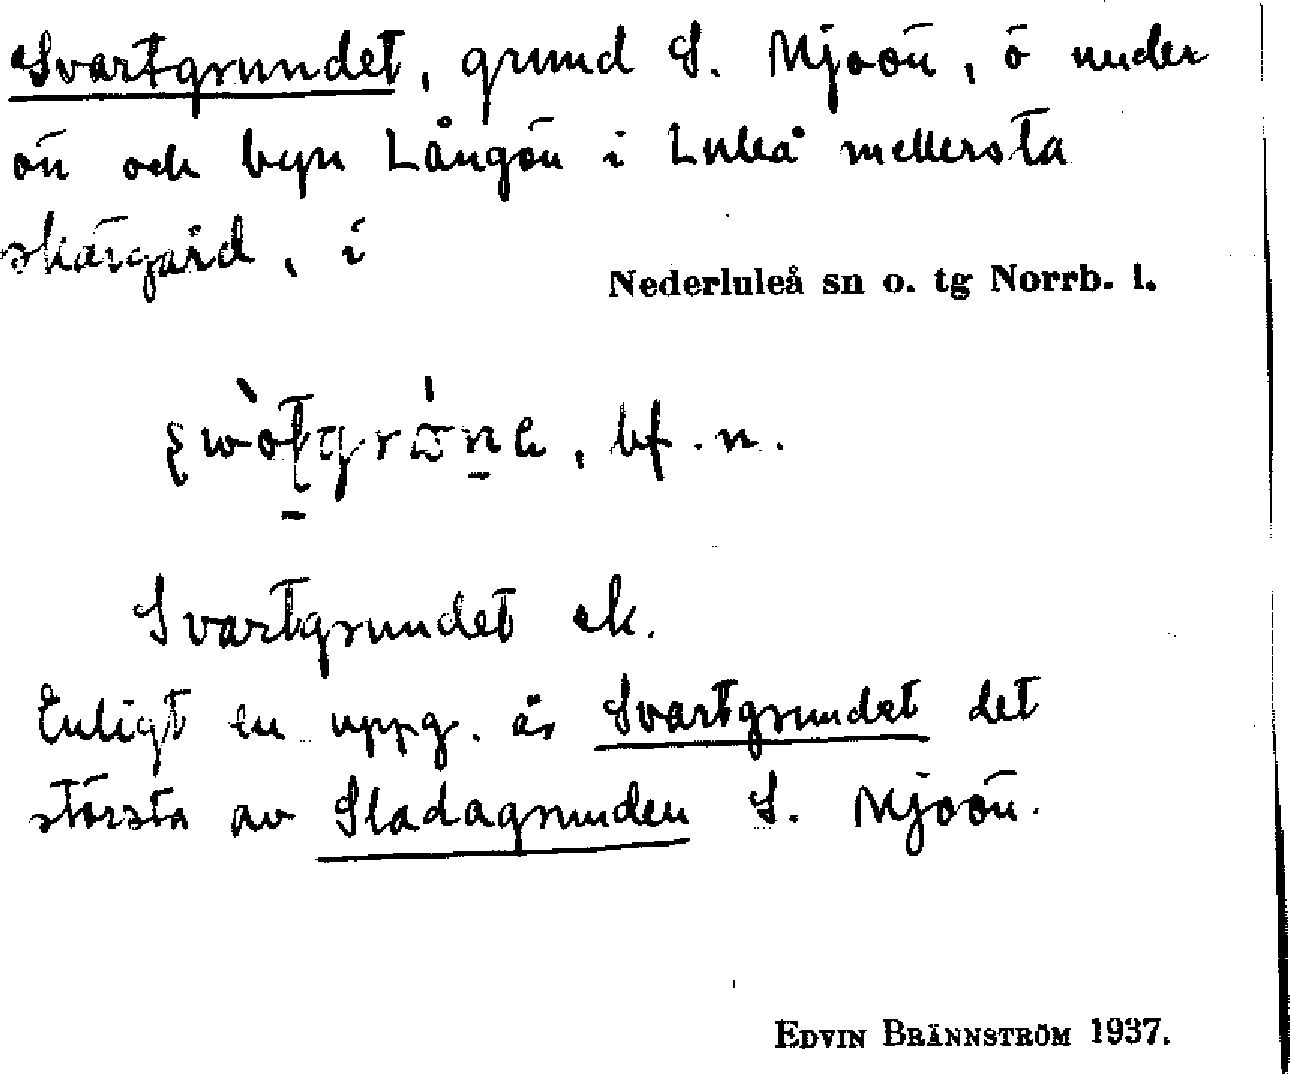 Svartgrundet, grund S. Mjoön, ö under
ön och byn Långön i Luleå mellersta
skärgård, i
Nederluleå sn o. tg Norrb. l.
, bf. n.
Svartgrundet ek.
Enligt en uppg. är Svartgrundet det
största av Sladagrunden S. Mjoön.
EDVIN BRÄNNSTRÖM 1937.